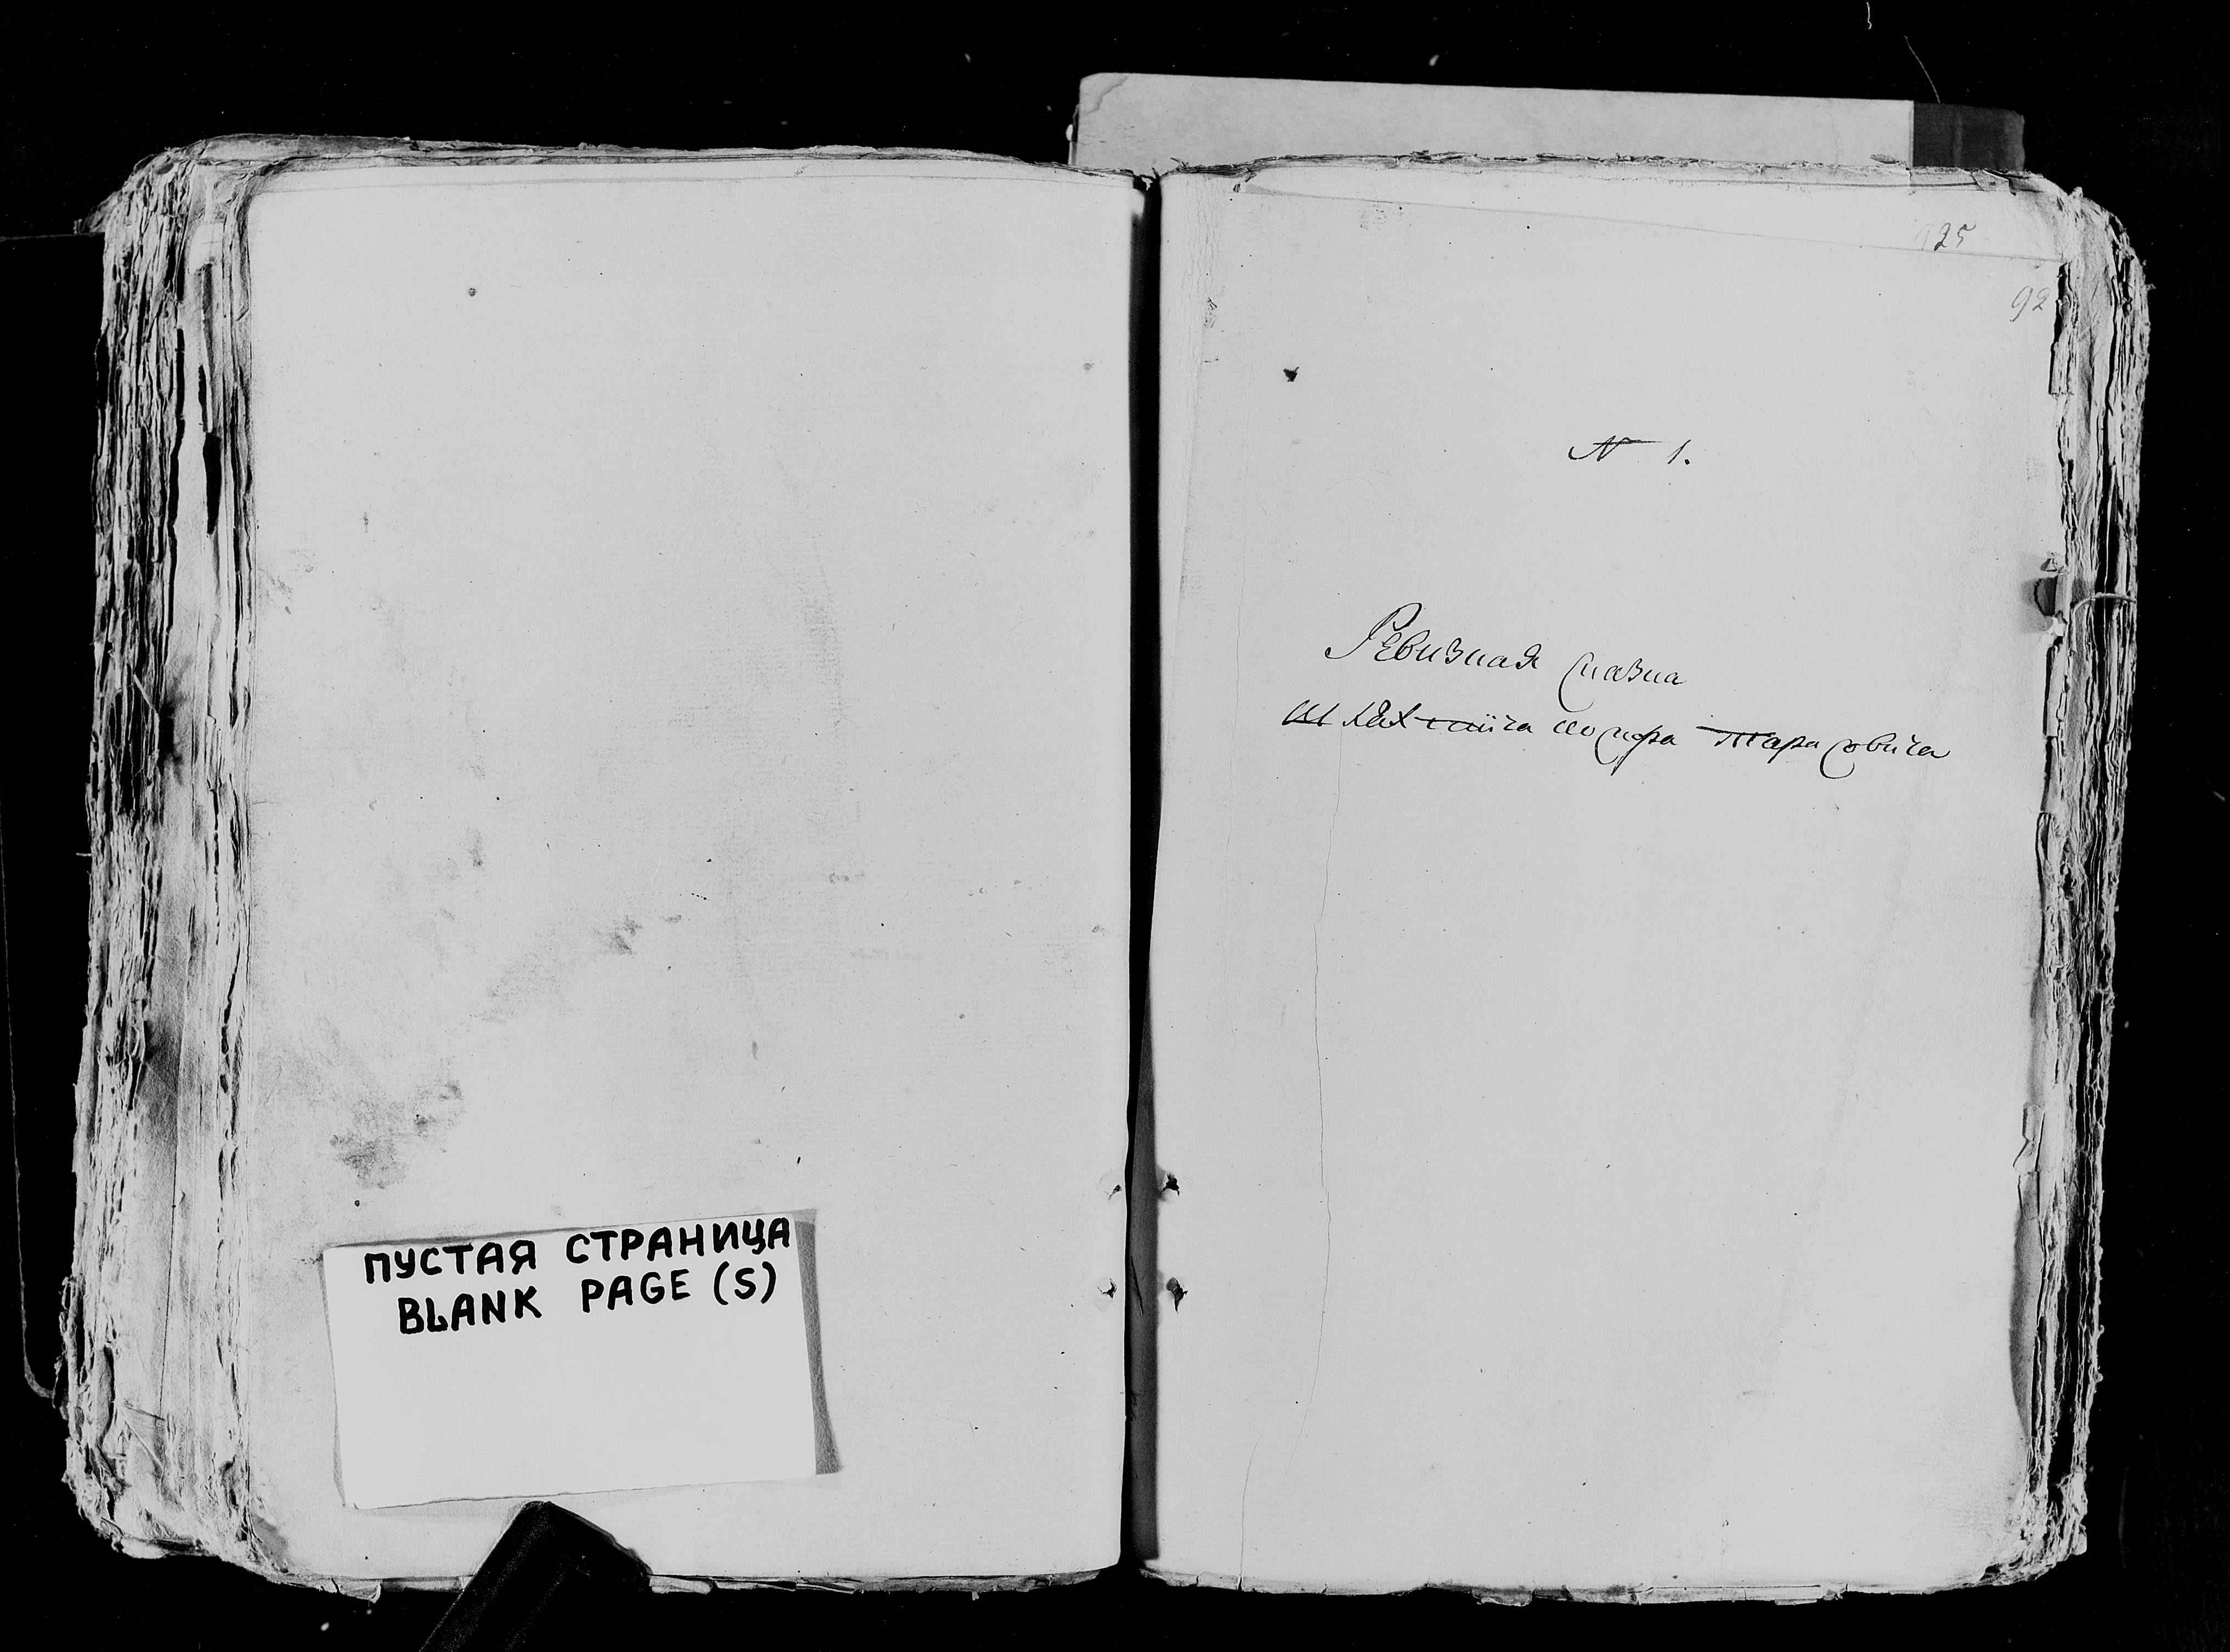 ПУСТАЯ СТРАНИЦА
BLANK PAGE (S)
125
92
№ 1.
Ревизная сказка
шляхтича Тарасовича